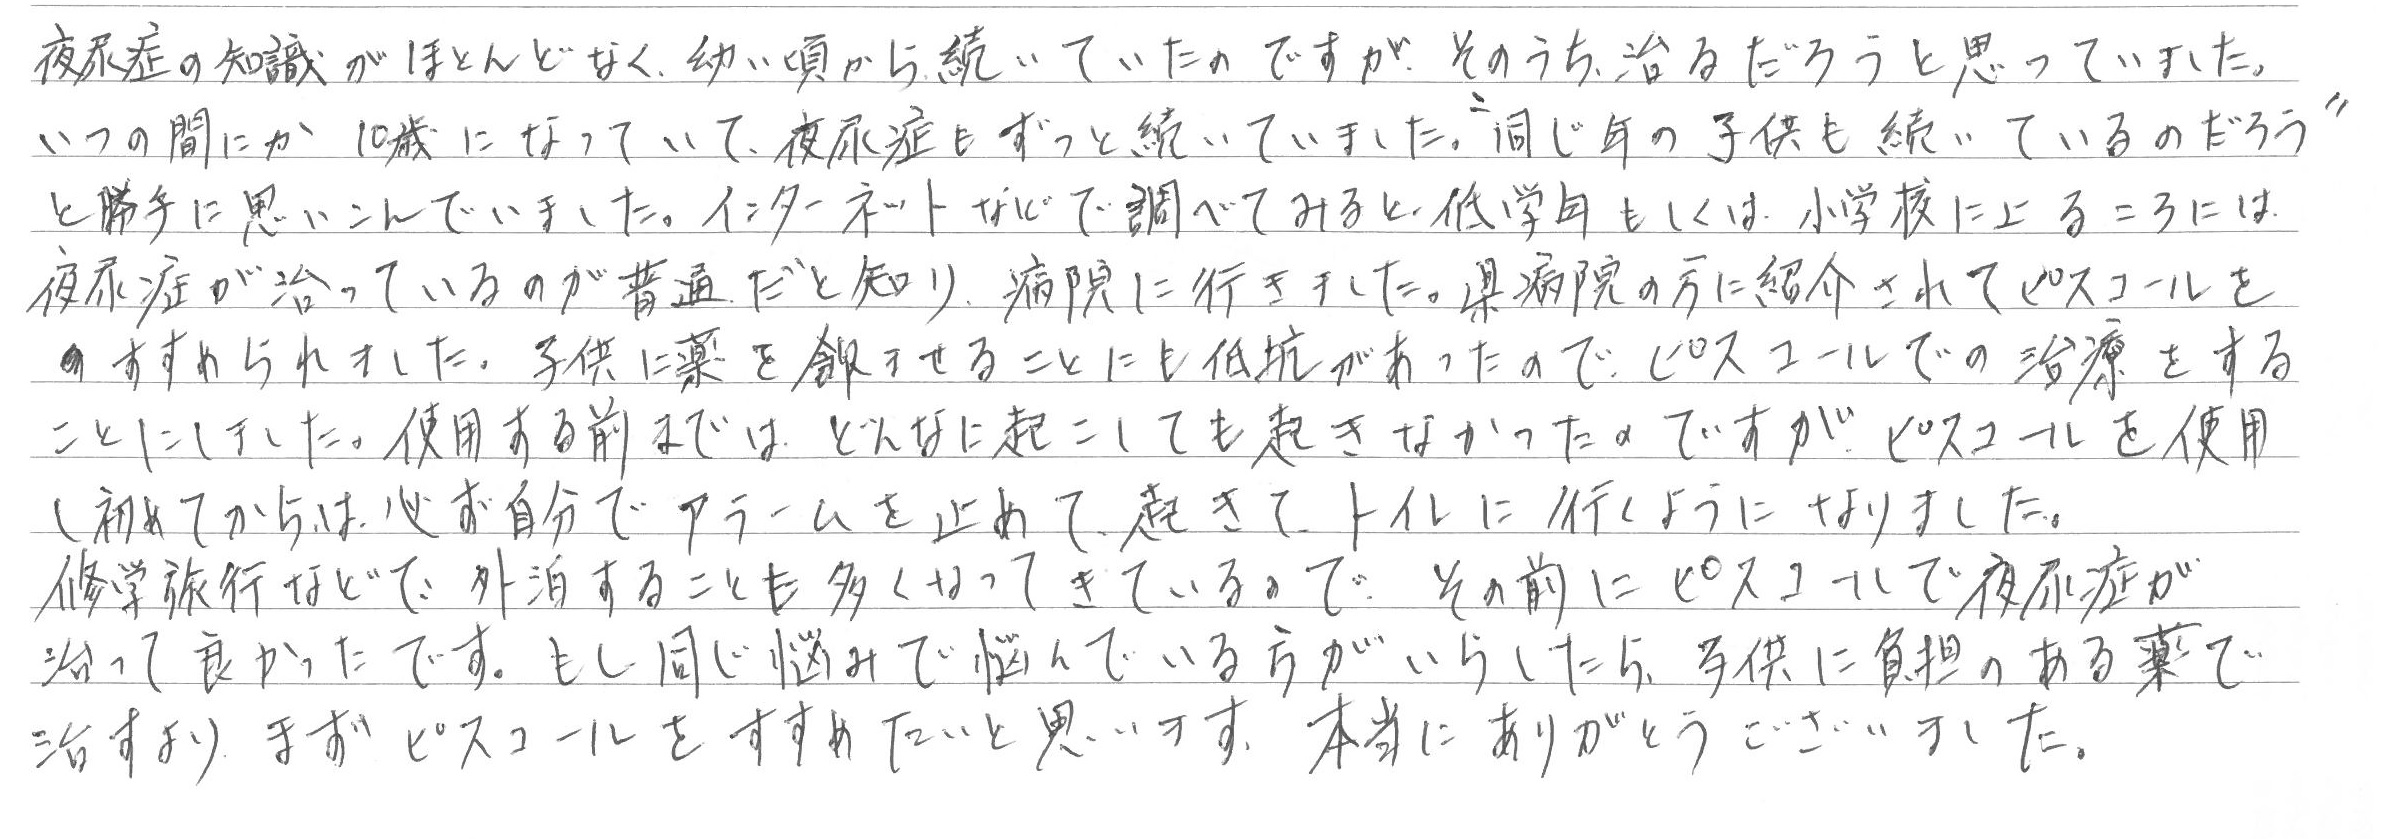 夜尿症の知識がほとんどなく、幼い頃から続いていたのですが、そのうち、治るだろうと思っていました。
いつの間にか 10歳になっていて、夜尿症もずっと続いていました。〝同じ年の子供も続いているのだろう〟
と勝手に思いこんでいました。インターネットなどで調べてみると、低学年もしくは、小学校に上るころには、
夜尿症が治っているのが普通だと知り、病院に行きました。県病院の方に紹介されてピスコールを
すすめられました。子供に薬を飲ませることにも低坑があったので、ピスコールでの治療をする
ことにしました。使用する前までは、どんなに起こしても起きなかったのですが、ピスコールを使用
し初めてからは、必ず自分でアラームを止めて、起きて、トイレに行くようになりました。
修学旅行などで、外泊することも多くなってきているので、その前にピスコールで夜尿症が
治って良かったです。もし同じ悩みで悩んでいる方がいらしたら、子供に負担のある薬で
治すより、まずピスコールをすすめたいと思います。本当にありがとうございました。